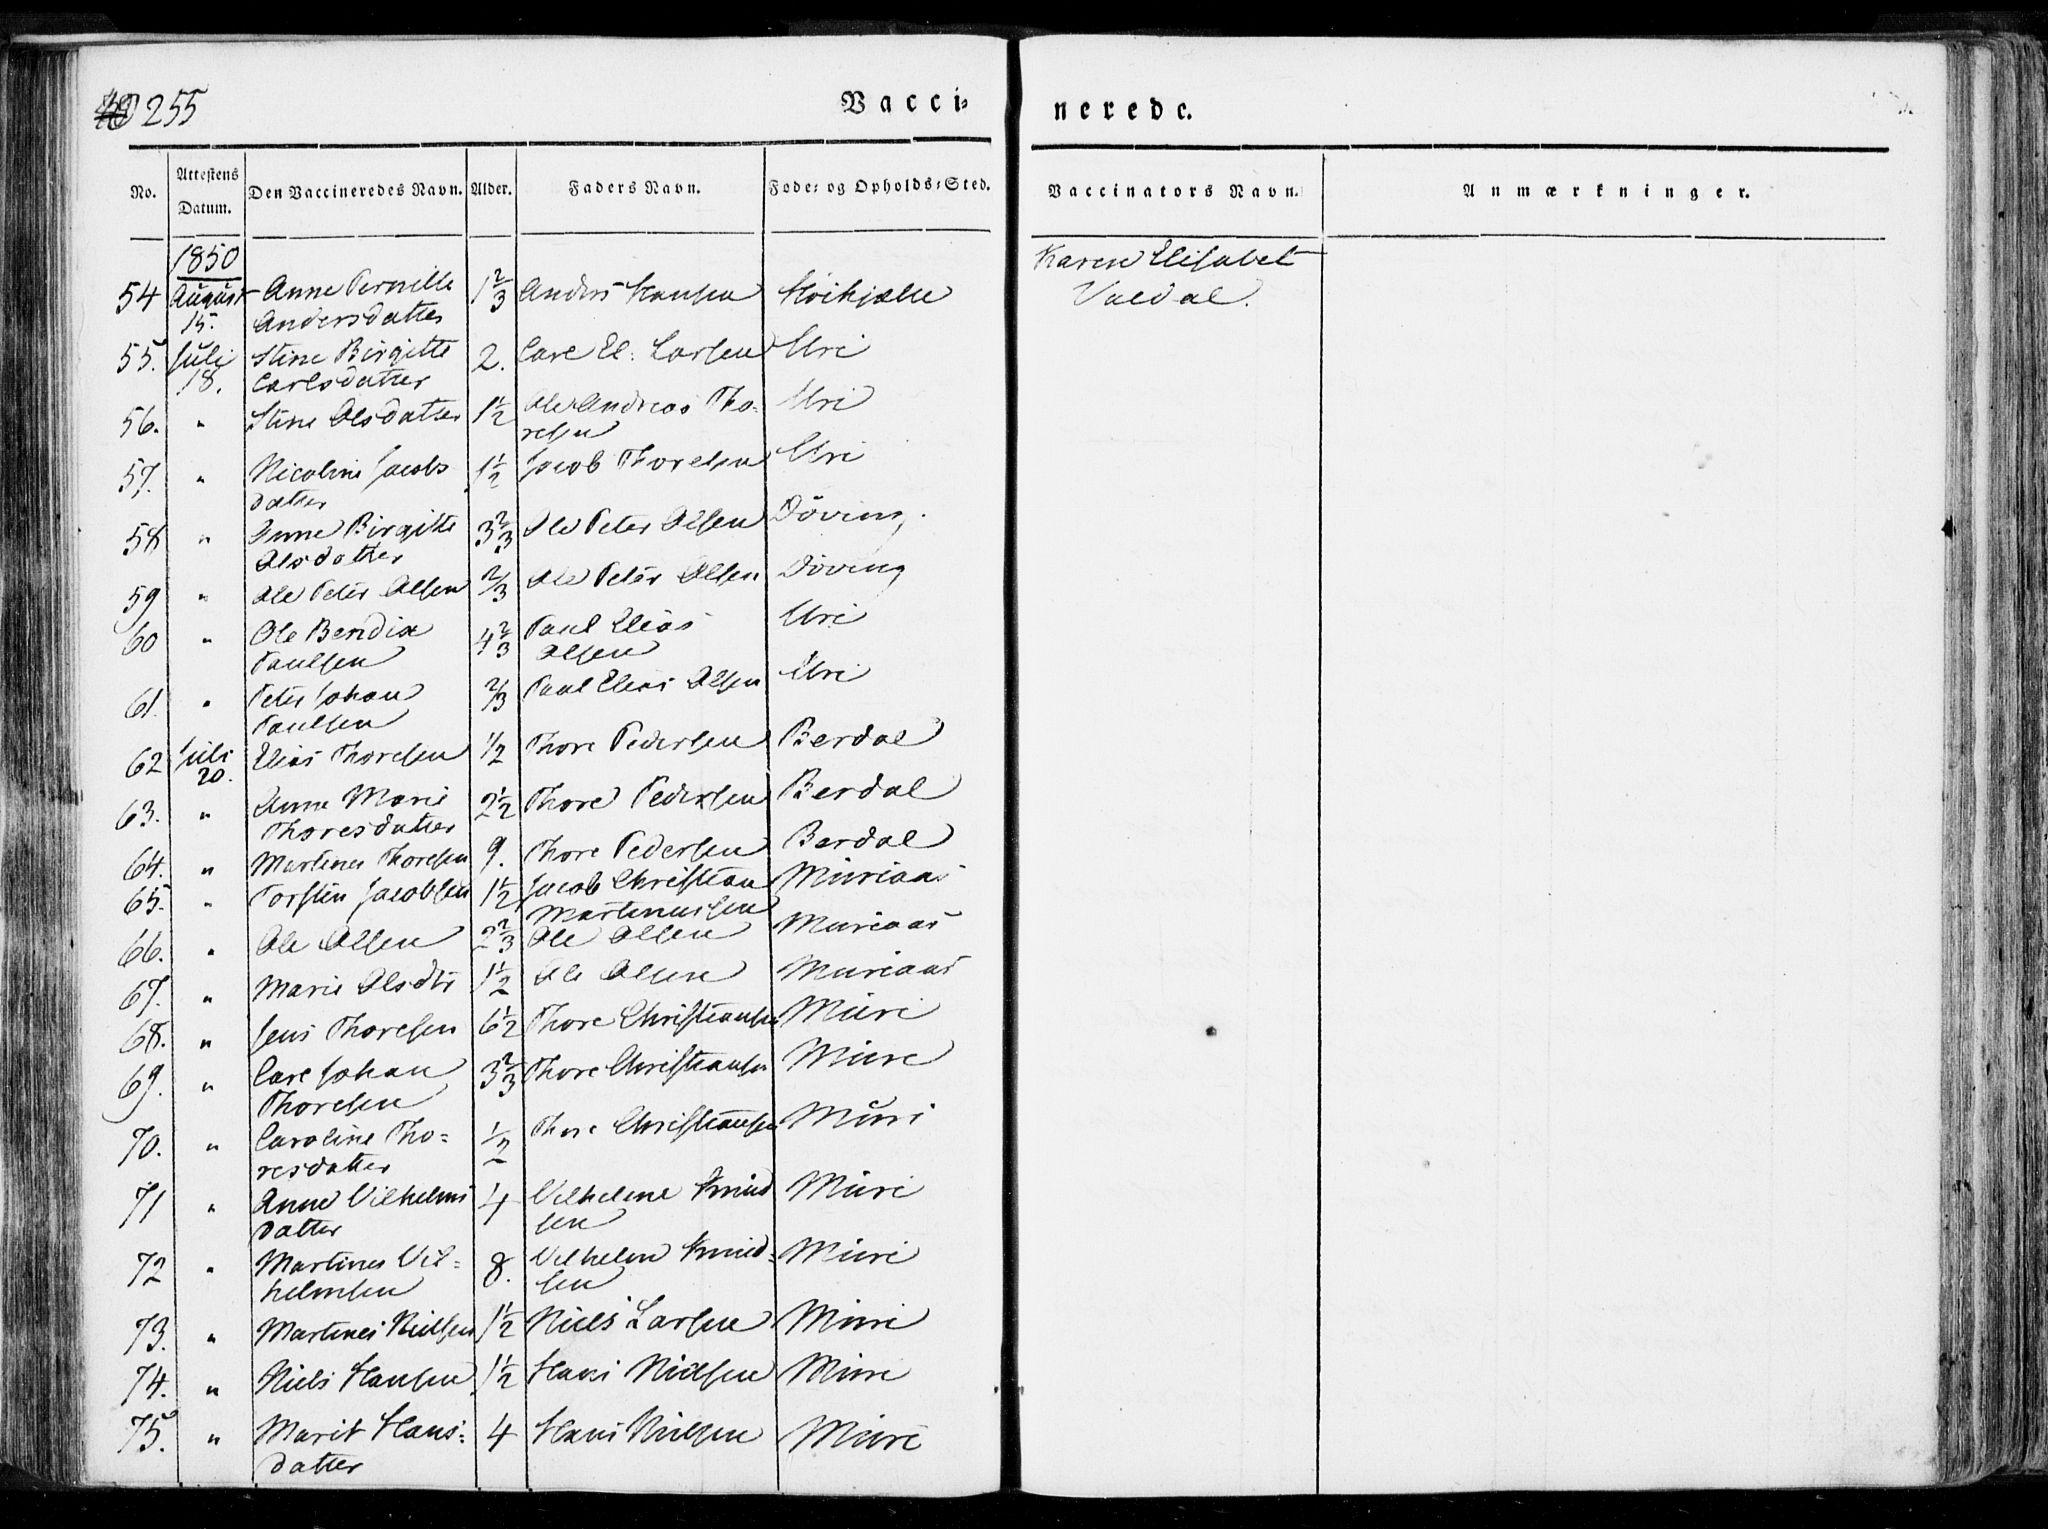 255
Vacci-
nerede.
No.
Attestens
Datum.
Den Vaccineredes Navn.
Alder.
Faders Navn.
Føde- og Opholds-Sted.
Vaccinators Navn.
Anmærkninger.
1850
Karen Elisabet
54 August Anne Pernille 1 2/3 Anders Hansen Høikjelle Valdal.
15. Andersdatter
55. Juli Stine Birgitte 2. Carl El. Larsen Uri
18. Carlsdatter
56. " Stine Olsdatter 1 1/2 Ole Andreas Tho- Uri
resen
57. " Nicoline Jacobs 1 1/2 Jacob Thoresen Uri
datter
58 " Anne Birgitte 3 2/3 Ole Peter Olsen Döving.
Olsdatter
59 " Ole Peter Olsen 2/3 Ole Peter Olsen Döving
60 " Ole Bendix 4 2/3 Paul Elias Uri
Paulsen Olsen
61. " Peter Johan 2/3 Paul Elias Olsen Uri
Paulsen
62 Juli Elias Thoresen 1/2 Thore Pedersen Berdal
20.
63. " Anne Marie 2 1/2 Thore Pedersen Berdal
Thoresdatter
64. " Martinus Thoresen 9. Thore Pedersen Berdal
65. " Torstein Jacobsen 1 1/2 Jacob Christian Muriaas
Martinussen
66. " Ole Olsen 2 2/3 Ole Olsen Muriaas
67. " Marie Olsdtr 1 1/2 Ole Olsen Muriaas
68. " Jens Thoresen 6 1/2 Thore Christiansen Muri
69. " Carl Johan 3 2/3 Thore Christiansen Muri
Thoresen
70. " Caroline Tho- 1/2 Thore Christiansen Muri
resdatter
71 " Anne Vilhelms 4 Vilhelm Knud Muri
datter sen
72 " Martinus Vil- 8. Vilhelm Knud- Muri
helmsen sen
73. " Martines Nielsen 1 1/2 Niels Larsen Muri
74. " Niels Hansen 1 1/2 Hans Nielsen Muri
75. " Marit Hans- 4 Hans Nielsen Muri
datter